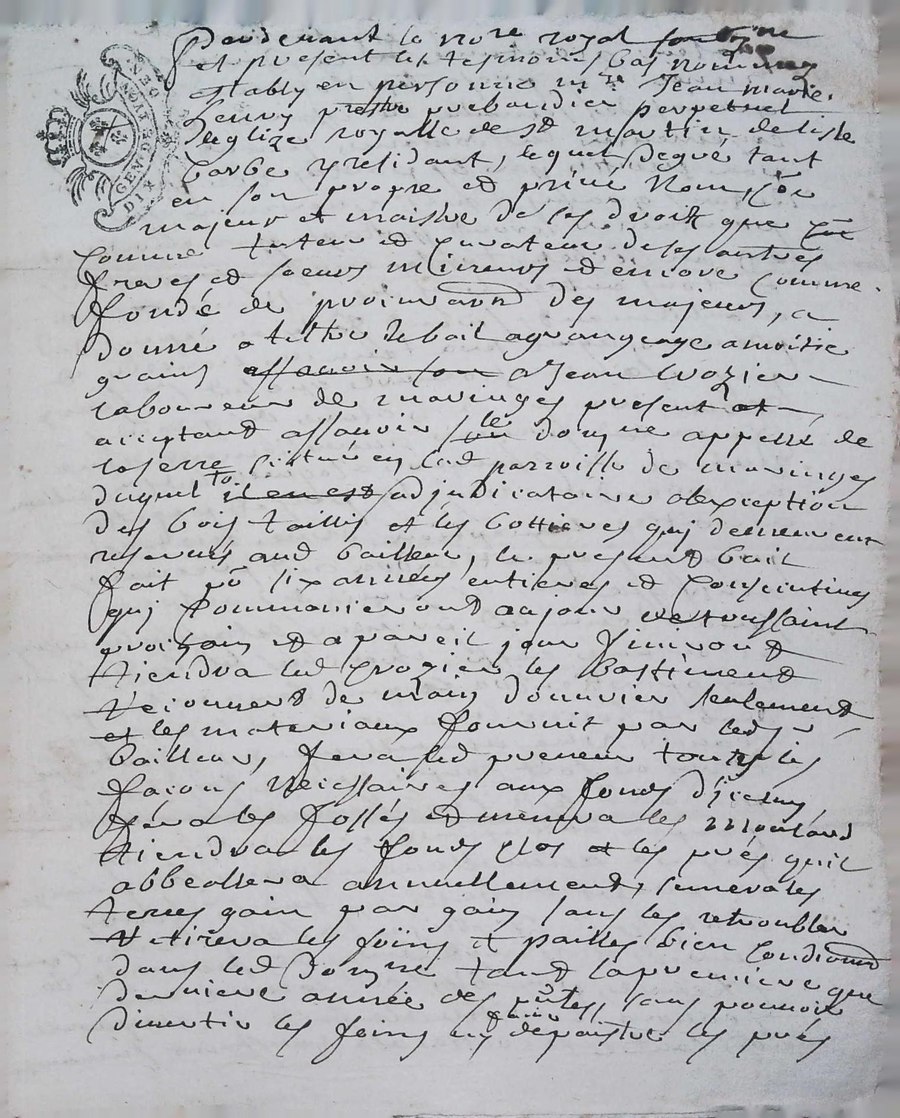 GEN. DE LYON
DIX
Pardevant le no.re royal soubsigné
et present les tesmoins bas nommez
establY en personne m.re Jean marie
henry prestre prebandier perpetuel
deglize royalle de St martin de lisle
barbe y residant, lequel de gré tant
en son propre et privé Nom, co.e
majeur et maistre de ses droitz que
comme tuteur et curateur de ses autres
freres et soeurs mineurs et encore comme
fondé de procura.on des majeurs, a
donné a tiltre de bail a grangeage a moitié
grains assavoir son a Jean Crozier
laboureur de maringes present et
acceptant assavoir son le domayne appellé de
laserre situé en lad parroisse de maringes
duquel il en est adjudicataire a lexception
des bois taillis et les cottieres qui demeurent
reservés aud bailleur, le present bail
fait po.r six années entieres et consecutives
qui commanceront au jour de toussaint
prochain et a pareil jour finiront
tiendra led Crozier les bastiments
recouverts de main douvrier seulement
et les materiaux fournit par led
bailleur, fera led preneur toutes les
façons necessaires aux fonds d'iceluy
fera les fossés et menera les
tiendra les fonds clos et les prés quil
abbeallera annuellement, semera les
terres gain par gain sans les retroubler
retirera les foins et pailles bien condiond
dans led domayne tant la premiere que
derniere année des pntes, sans pouvoir
divertir les foins ny faire depaistre les prés